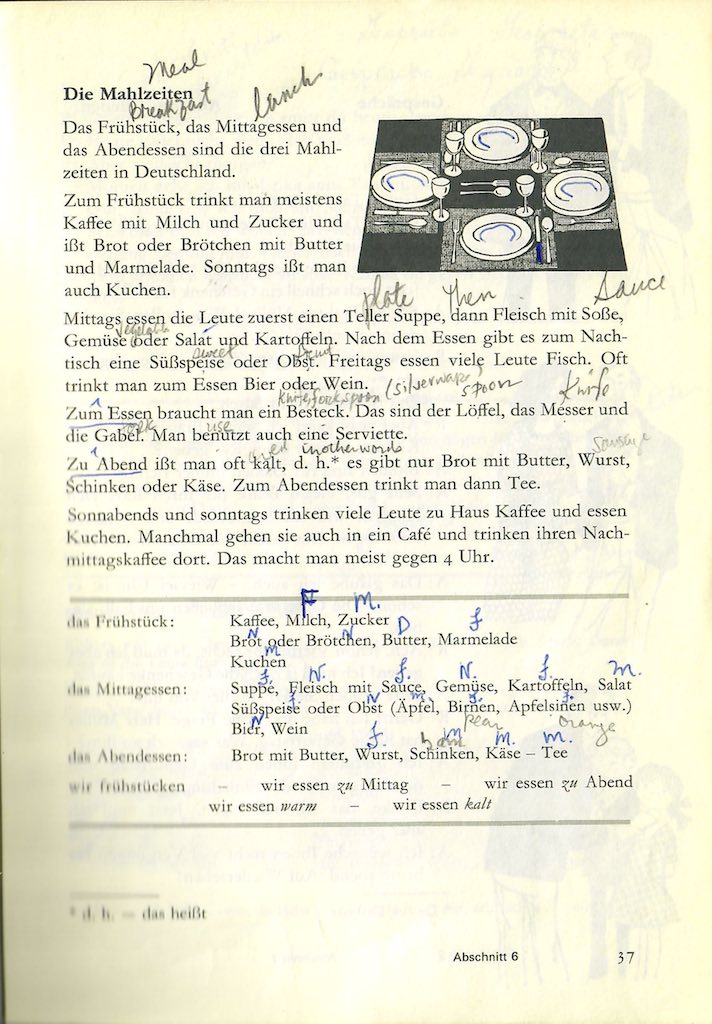 Meal
Die Mahlzeiten
Breakfast
lunch
Das Frühstück, das Mittagessen und
das Abendessen sind die drei Mahl-
zeiten in Deutschland.
Zum Frühstück trinkt man meistens
Kaffee mit Milch und Zucker und
ißt Brot oder Brötchen mit Butter
und Marmelade. Sonntags ißt man
auch Kuchen.
plate then sauce
Mittags essen die Leute zuerst einen Teller Suppe, dann Fleisch mit Soße,
vegetable
Gemüse oder Salat und Kartoffeln. Nach dem Essen gibt es zum Nach-
sweet fruit
tisch eine Süßspeise oder Obst. Freitags essen viele Leute Fisch. Oft
trinkt man zum Essen Bier oder Wein.
(silverware) spoon Knife
Zum Essen braucht man ein Besteck. Das sind der Löffel, das Messer und
fork use
die Gabel. Man benutzt auch eine Serviette.
in other words sausage
Zu Abend ißt man oft kalt, d. h.* es gibt nur Brot mit Butter, Wurst,
Schinken oder Käse. Zum Abendessen trinkt man dann Tee.
Sonnabends und sonntags trinken viele Leute zu Haus Kaffee und essen
Kuchen. Manchmal gehen sie auch in ein Café und trinken ihren Nach-
mittagskaffee dort. Das macht man meist gegen 4 Uhr.
F M.
das Frühstück: Kaffee, Milch, Zucker
N N D f
Brot oder Brötchen, Butter, Marmelade
m
Kuchen
f. N. f. N. f. m.
das Mittagessen: Suppe, Fleisch mit Sauce, Gemüse, Kartoffeln, Salat
f. N m. f. f.
Süßspeise oder Obst (Äpfel, Birnen, Apfelsinen usw.)
N pear orange
Bier, Wein
f. ham m m. m.
das Abendessen: Brot mit Butter, Wurst, Schinken, Käse – Tee
wir frühstücken – wir essen zu Mittag – wir essen zu Abend
wir essen warm – wir essen kalt
* d. h. = das heißt
Abschnitt 6 37